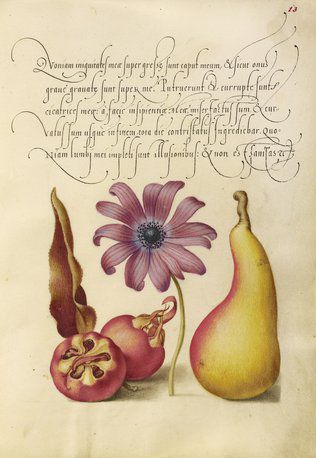 13
Quoniam iniquitates meæ super gressæ sunt caput meum, & sicut onus
graue grauatæ sunt super me. Putruerunt & corruptæ sunt
cicatrices meæ: a facie insipientiæ meæ, miser factus sum & cur-
uatus sum usque in finem tota die contristatus ingrediebar. Quo-
niam lumbi mei impleti sunt illusionibus: & non est sanitas